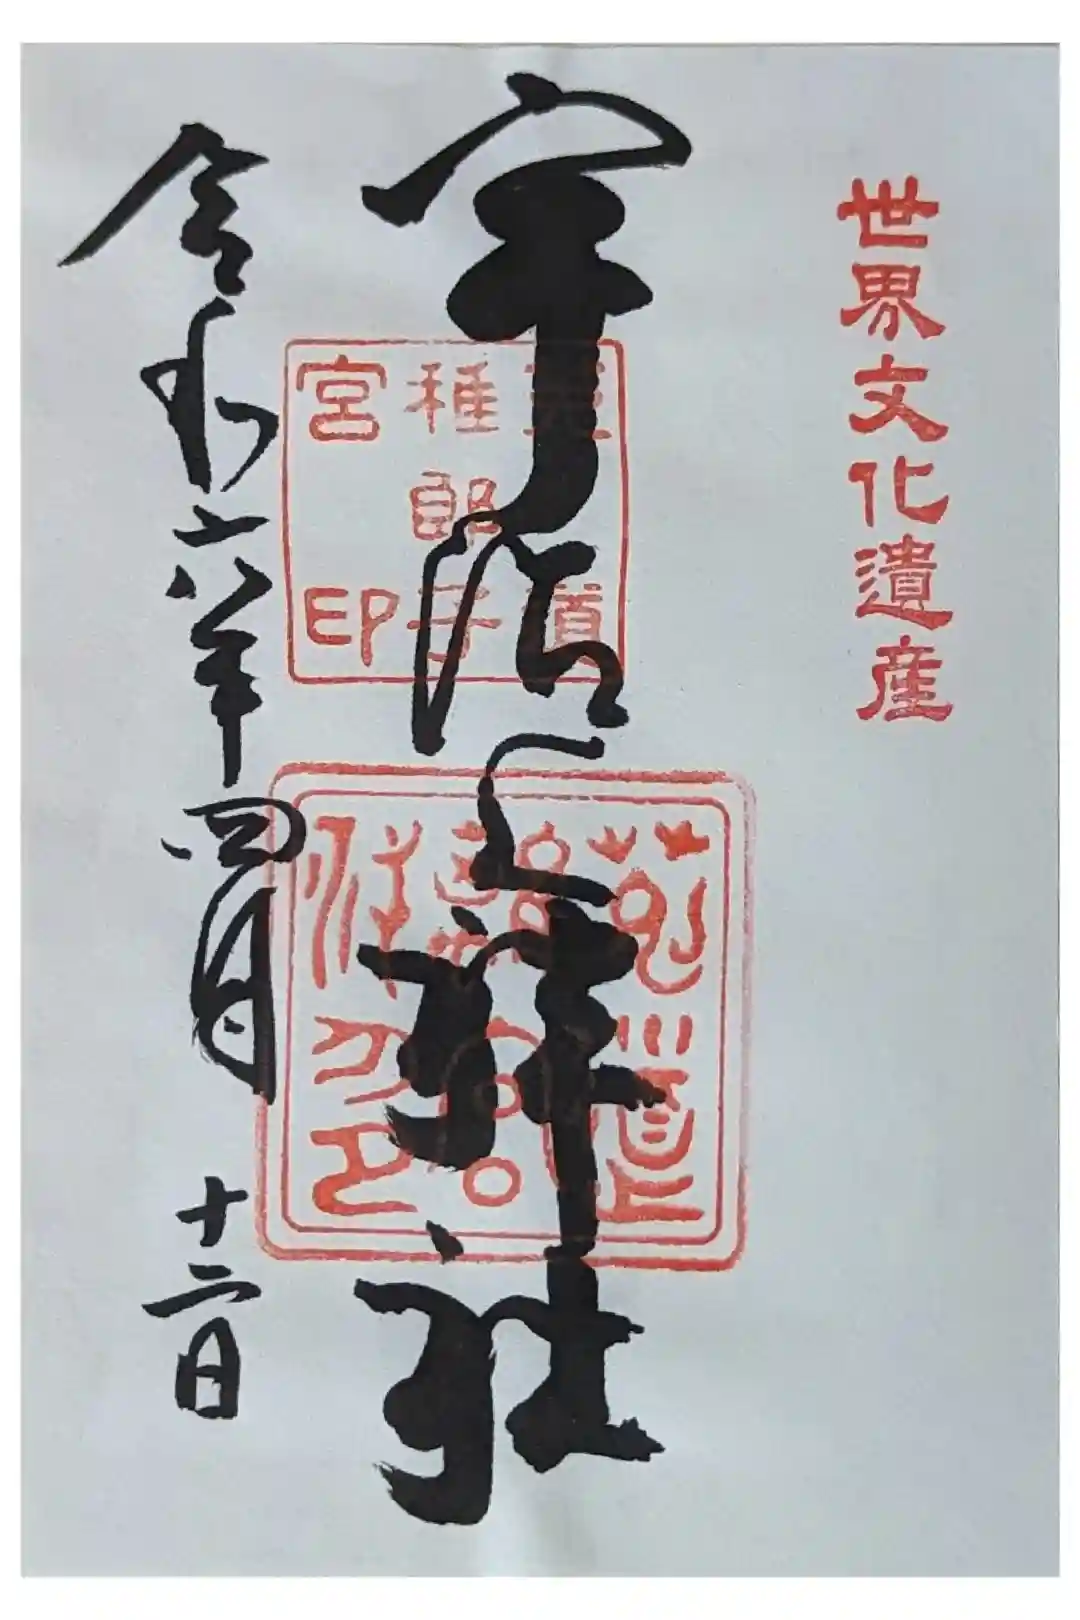 世界文化遺産
宇治上神社
菟道
稚郎子
宮印
令和六年四月十二日